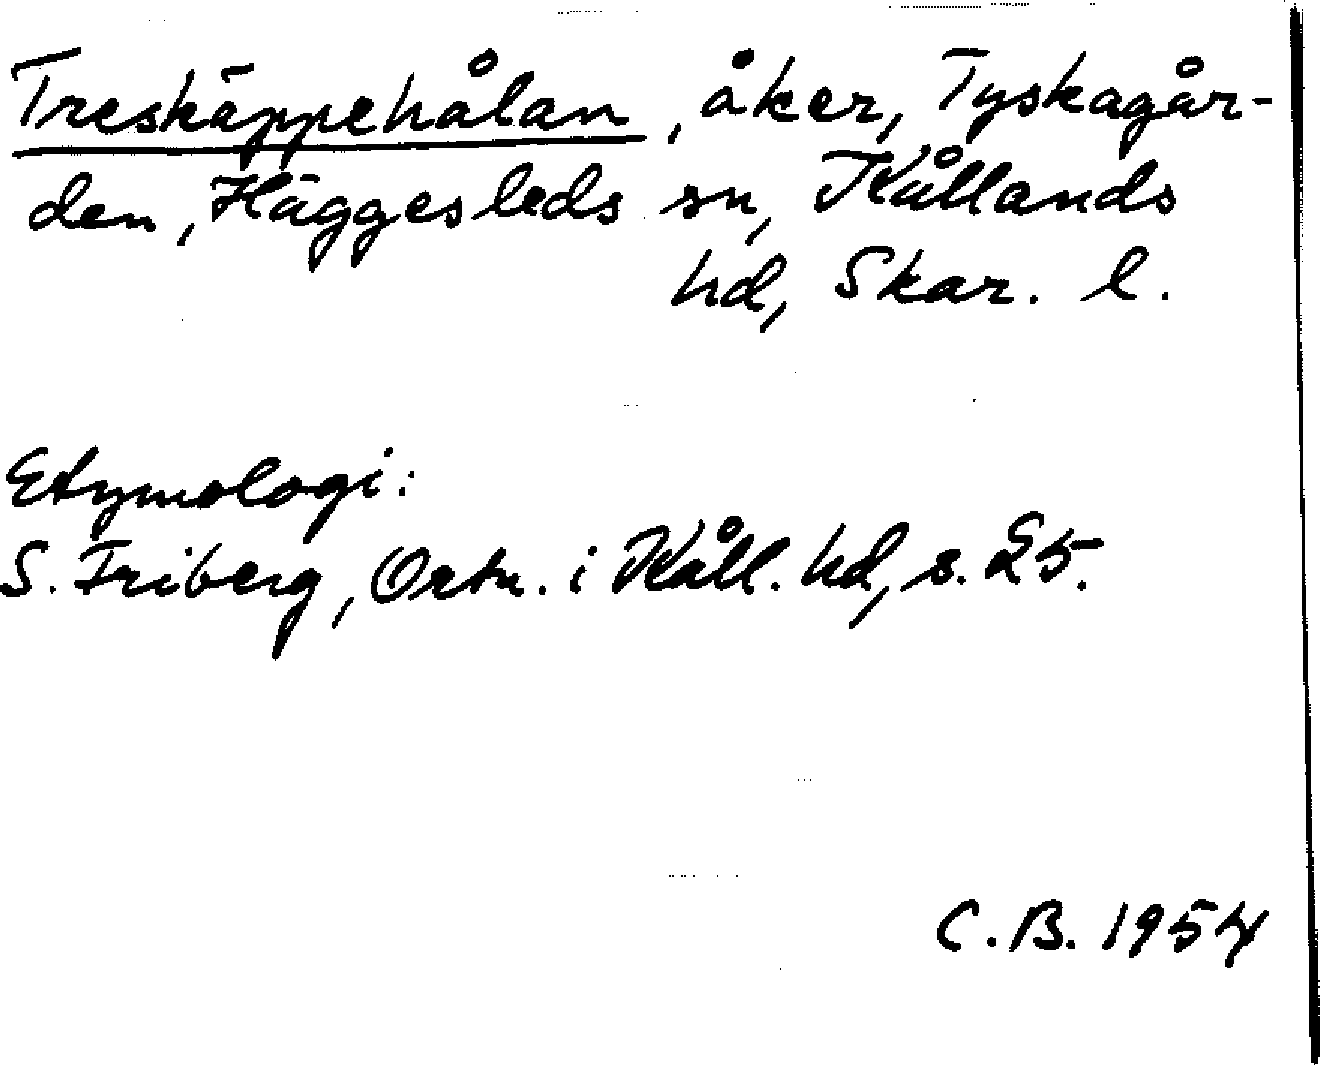 Treskäppehålan, åker, Tyskagår-
den, Häggesleds sn, Kållands
hd, Skar. l.
Etymologi:
S. Friberg, Ortn. i Kåll. hd, s. 25.
C. B. 1954